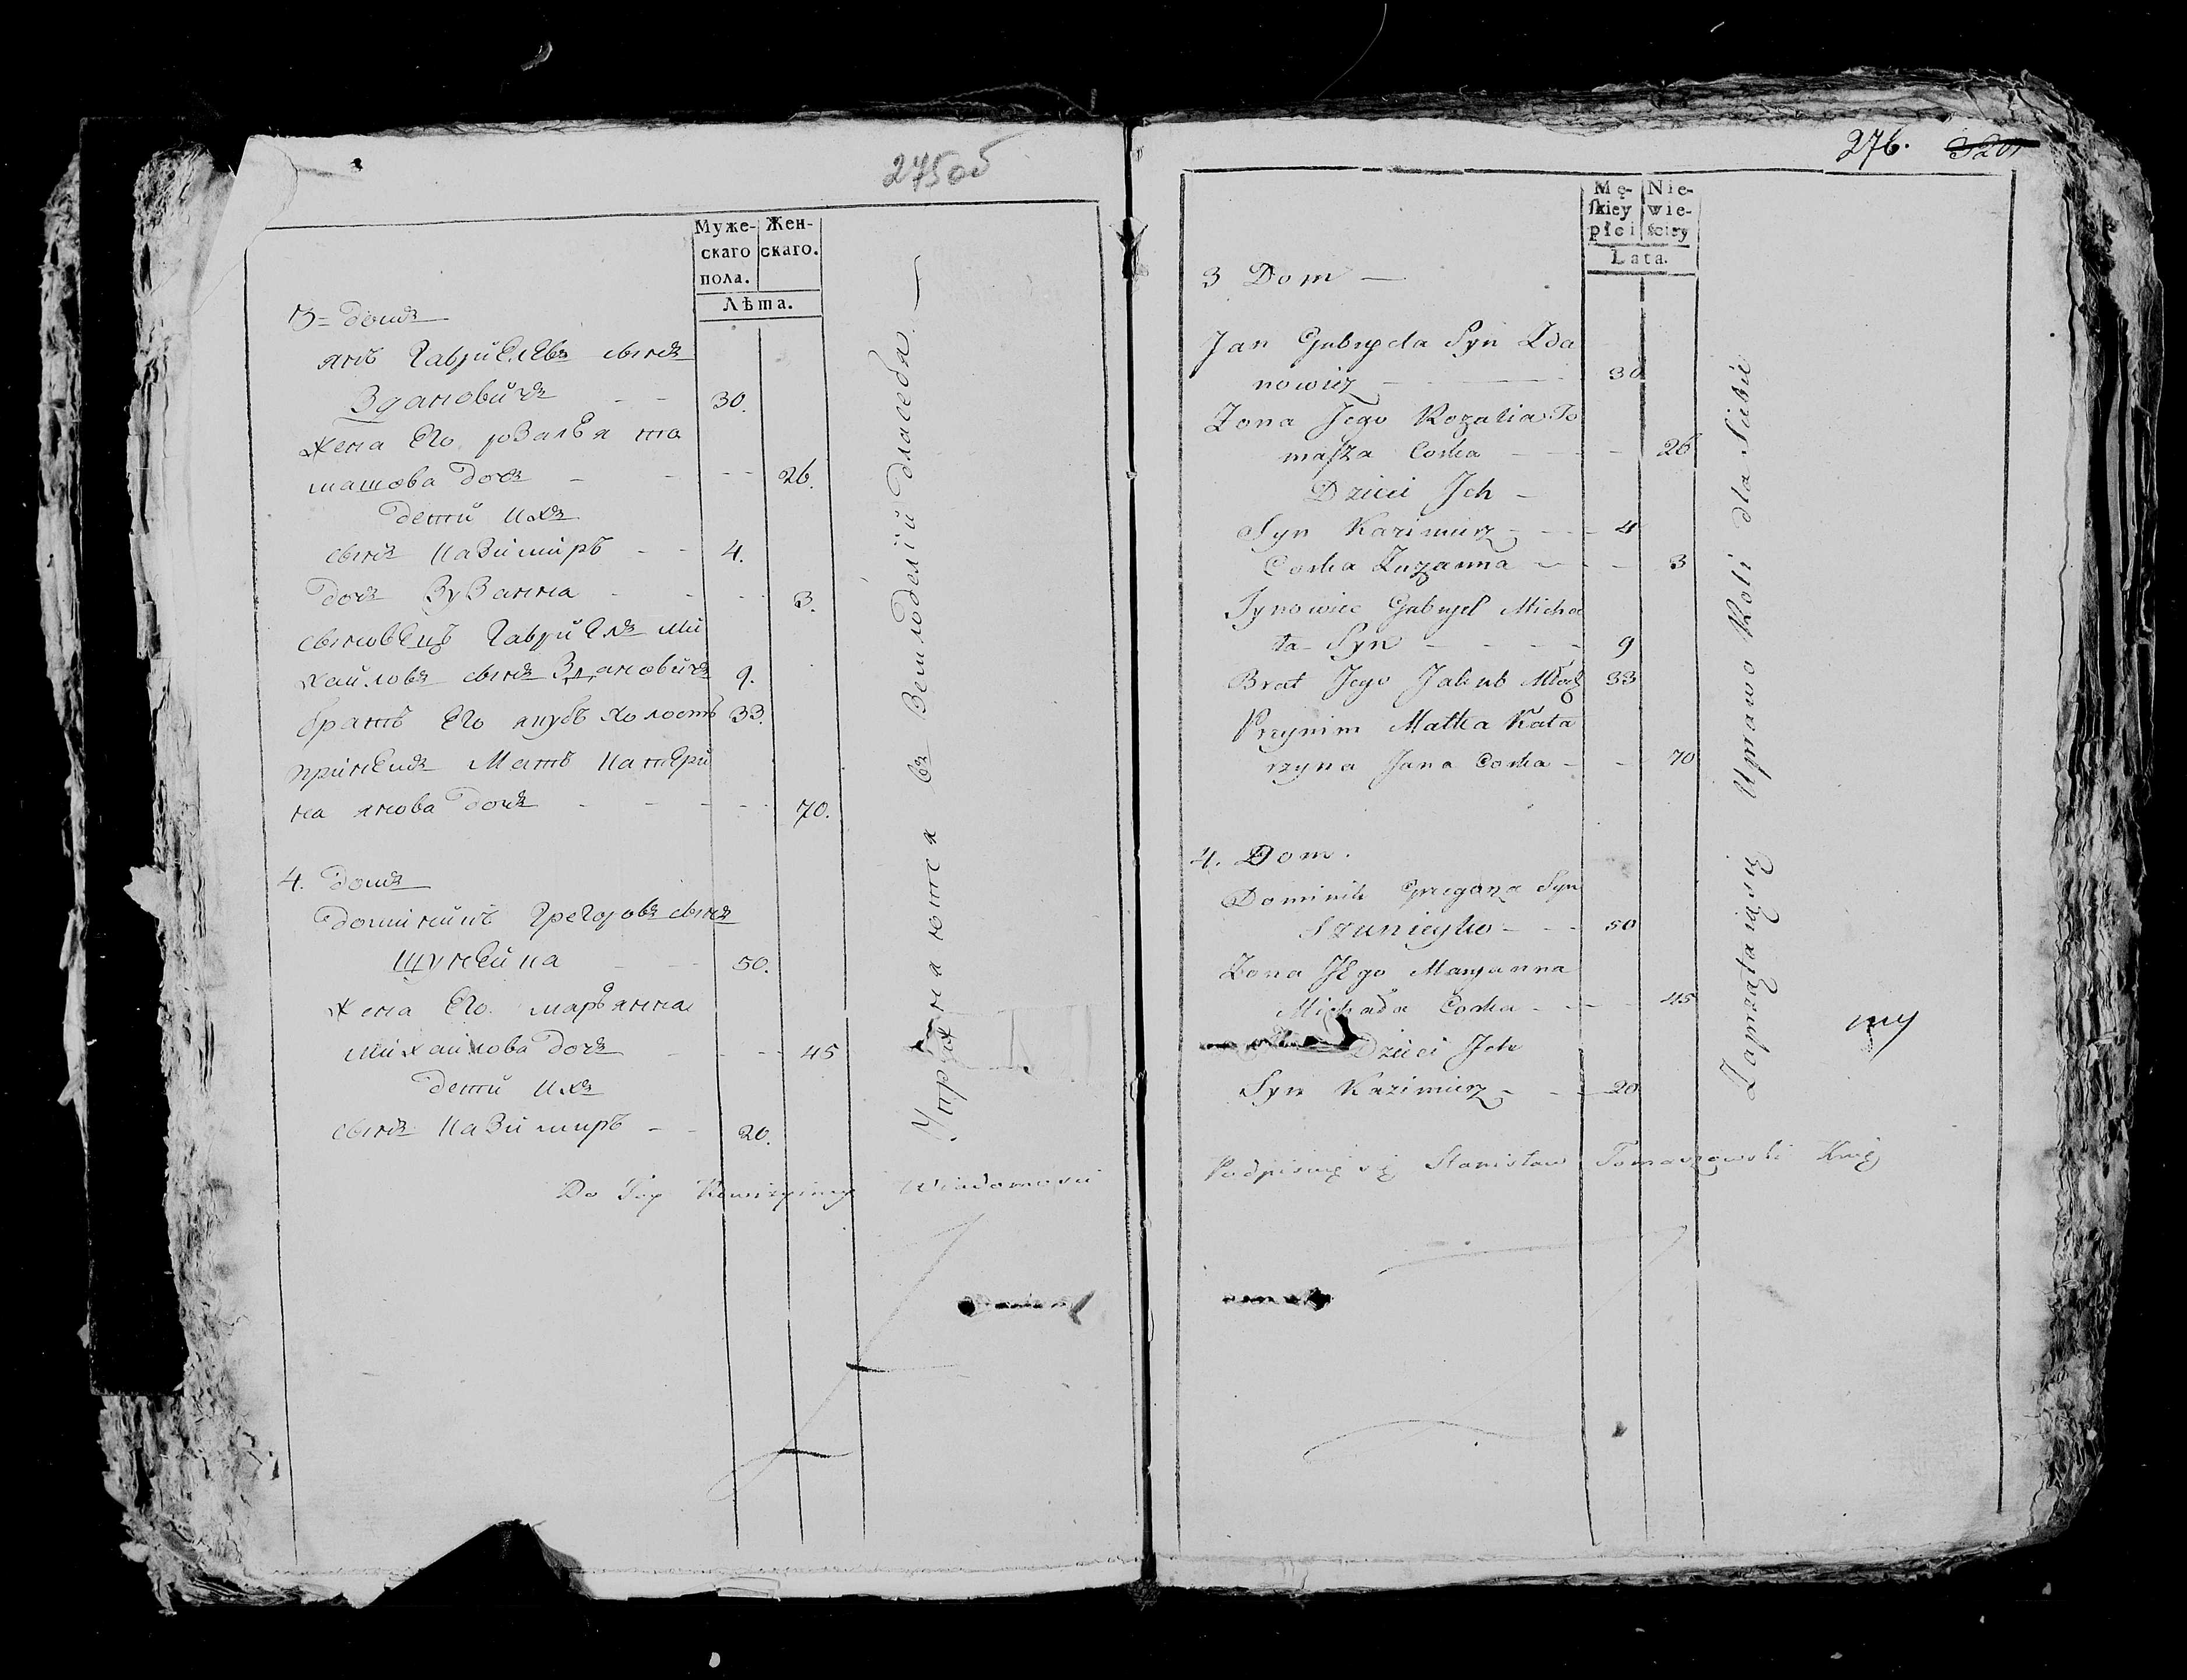 275об
Муже- Жен-
скаго скаго.
пола.
Лѣта.
3 = домъ
янъ Гаврiйелевъ сынъ
Здановичъ - - 30.
жена Его розалѣя то
машова дочъ - - - - 26.
дети ихъ
сынъ казимиръ - - 4.
дочъ Зузанна - - - 3.
сыновецъ Гаврiйелъ Ми
хайловъ сынъ Здановичъ 9.
братъ Его якубъ холостъ 33.
принемъ Мать катери
на янова дочъ - - - - - 70.
4. домъ
доминикъ Грегоровъ сынъ
Щунейка - - 50.
жена Его. марѣянна
михайлова дочъ - - - 45
дети ихъ
сынъ казимиръ - - 20.
Упражнаются въ Земледелiй для себя. —
Do Tey Rewizyiney Wiadomosci
276. 320
Mę- Nie-
skiey wie-
płci sciey
Lata.
3 Dom —
Jan Gabryela Syn Zda
nowicz - — 30
Zona Jego Rozalia To
masza Corka - - - - 26
Dzieci Jch -
Syn Kazimierz - - - - 4
Corka Zuzanna - - - 3
Synowiec Gabryel Micha
ła Syn - - - - - 9
Brat Jego Jakub Młodz 33
Przynim Matka Kata
rzyna Jana Corka - - 70
4. Dom.
Dominik Grzegorza Syn
Szunieyko - - - 50
Zona JEgo Maryanna
Michała Corka - - - 45
Dzieci Jch
Syn Kazimierz - - - 20
Zaprzątaiąsię Uprawą Roli dla Siebie
Podpisuię się Stanisław Tomaszewski